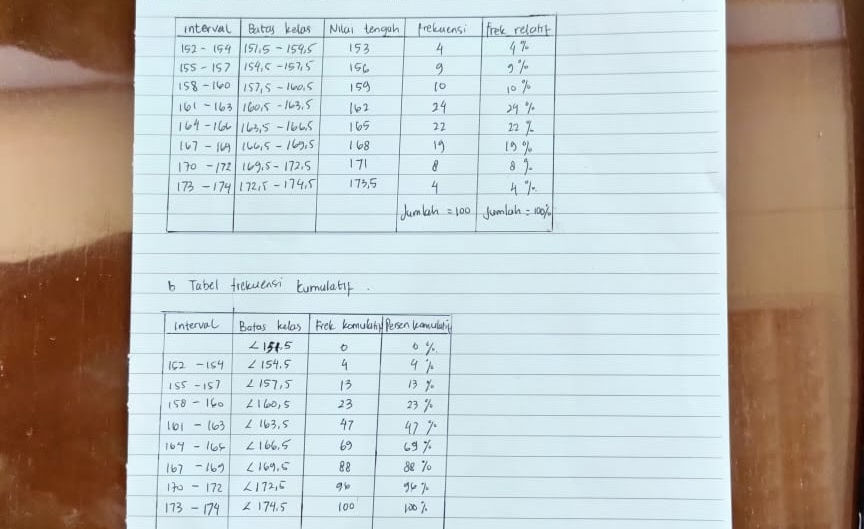 interval Batas kelas Nilai tengah frekuensi frek relatif
152 - 154 151,5 - 154,5 153 4 4 %
155 - 157 154,5 - 157,5 156 9 9 %
158 - 160 157,5 - 160,5 159 10 10 %
161 - 163 160,5 - 163,5 162 24 24 %
164 - 166 163,5 - 166,5 165 22 22 %
167 - 169 166,5 - 169,5 168 19 19 %
170 - 172 169,5 - 172,5 171 8 8 %
173 - 174 172,5 - 174,5 173,5 4 4 %
Jumlah = 100 Jumlah = 100%
b Tabel frekuensi kumulatif .
Interval Batas kelas Frek komulatif Persen komulatif
< 151.5 0 0 %
152 - 154 < 154.5 4 4 %
155 - 157 < 157,5 13 13 %
158 - 160 < 160,5 23 23 %
161 - 163 < 163,5 47 47 %
164 - 165 < 166.5 69 69 %
167 - 169 < 169.5 88 88 %
170 - 172 < 172,5 96 96 %
173 - 174 < 174.5 100 100 %